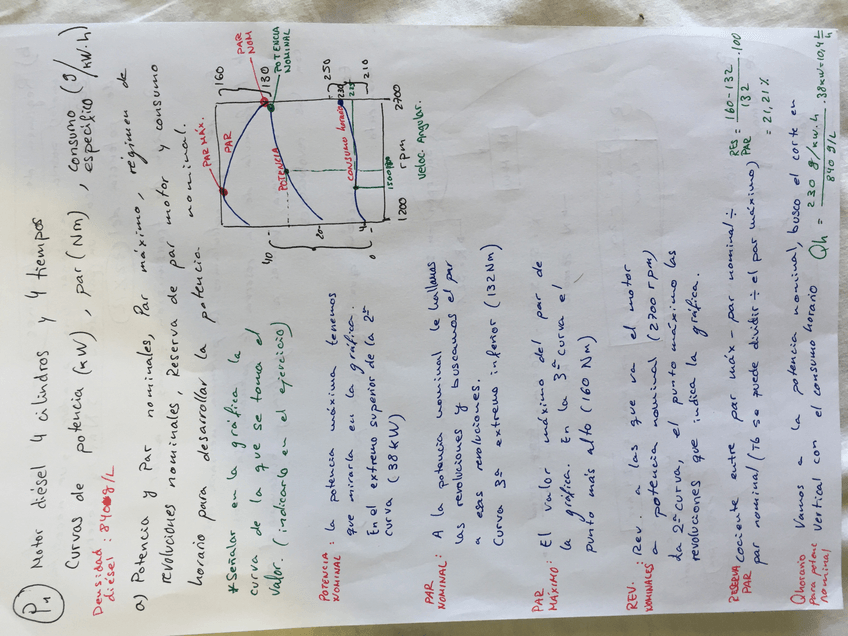 P1 Motor diésel 4 cilindros y 4 tiempos
Curvas de potencia (kW), par (Nm), consumo específico (g/kW·h)
Densidad diésel: 840 g/L
a) Potencia y par nominales, Par máximo, régimen de
revoluciones nominales, Reserva de par motor y consumo
horario para desarrollar la potencia nominal.
*Señalar en la gráfica la
curva de la que se toma el
valor. (indicarlo en el ejercicio)
PAR MÁX.
PAR
160
PAR NOM
130
POTENCIA NOMINAL
POTENCIA
40
20
0
CONSUMO horario
250
230
210
1500 rpm
1200
rpm
2700
Veloc. Angular.
POTENCIA NOMINAL: la potencia máxima tenemos
que mirarla en la gráfica.
En el extremo superior de la 2ª
curva (38 KW)
PAR NOMINAL: A la potencia nominal le hallamos
las revoluciones y buscamos el par
a esas revoluciones.
Curva 3ª extremo inferior (132 Nm)
PAR MÁXIMO: El valor máximo del par de
la gráfica. En la 3ª curva el
punto más alto (160 Nm)
REV. NOMINALES: Rev. a las que va el motor
a potencia nominal (2700 rpm)
La 2ª curva, el punto máximo las
revoluciones que indica la gráfica.
RESERVA PAR cociente entre par máx - par nominal ÷
par nominal (Tb se puede dividir ÷ el par máximo)
RES PAR = 160-132 / 132 · 100
= 21,21 %
Qhorario para potenc nominal Vamos a la potencia nominal, busco el corte en
vertical con el consumo horario
Qh = 230 g/kw.h / 840 g/L · 38kw = 10,4 L/h